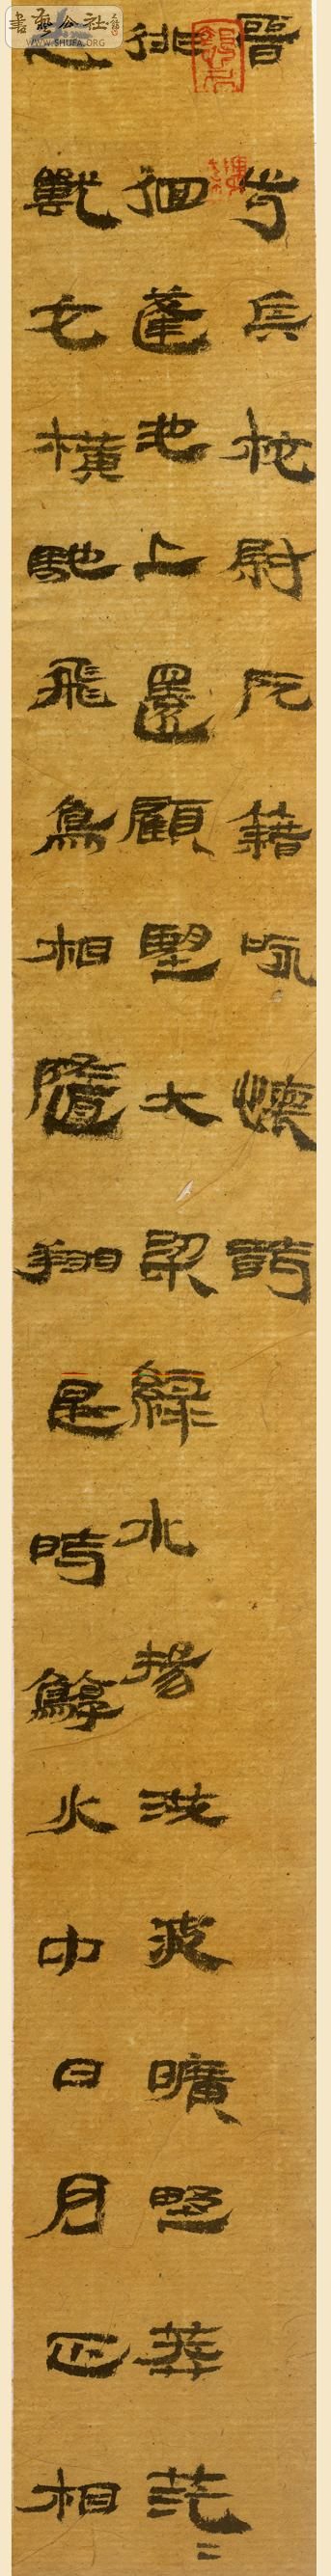 晉步兵校尉阮籍咏懷詩
徘徊蓬池上還顧望大梁綠水揚洪波曠野莽茫〻
走獸交橫馳飛鳥相隨翔是時鶉火中日月正相
書藝公社
WWW.SHUFA.ORG